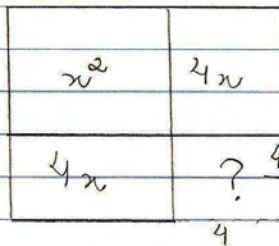 x² 4x
4x ? 4
4